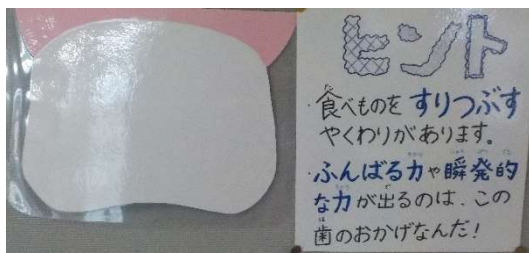 ヒント
・食べものをすりつぶす
やくわりがあります。
・ふんばる力や瞬発的
な力が出るのは、この
歯のおかげなんだ!